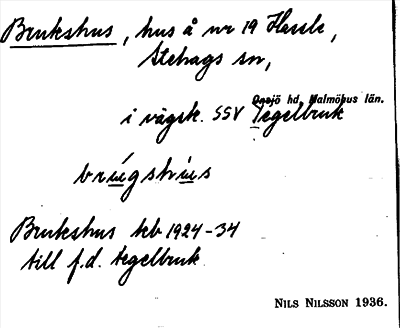 Brukshus, hus å nr 19 Hassle,
Stehags sn,
Onsjö hd, Malmöhus län.
i vägsk. SSV Tegelbruk
brúgshús
Brukshus kb 1924-34
till f.d. tegelbruk.
NILS NILSSON 1936.